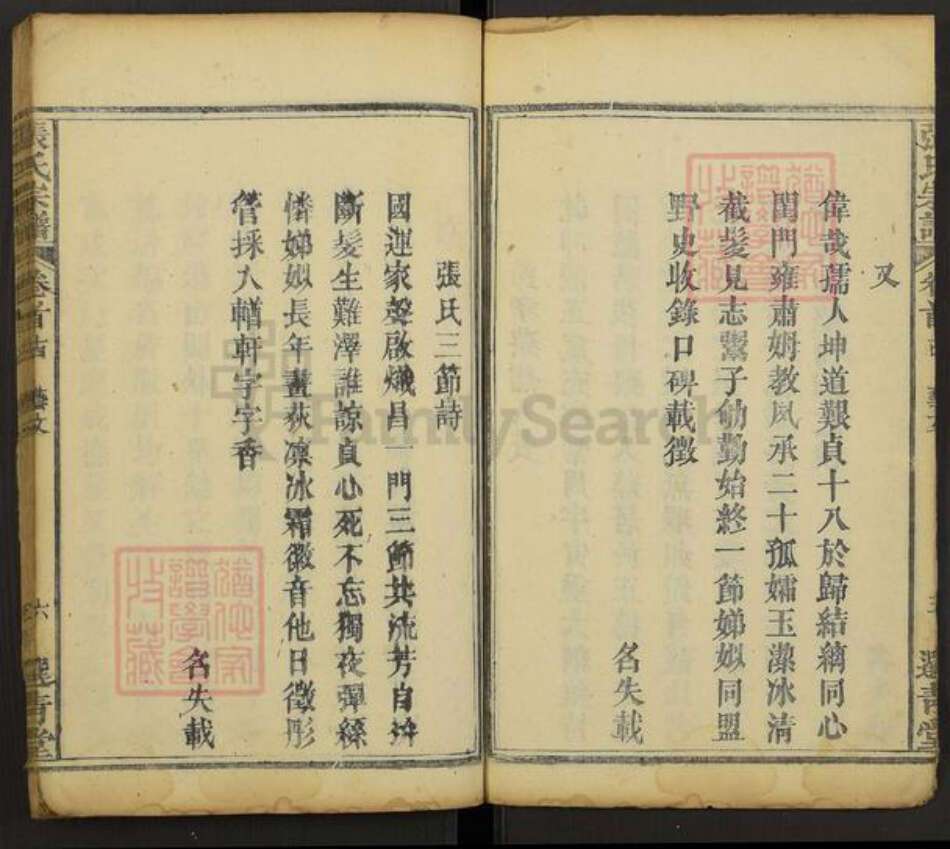 又
偉哉孺人坤道艱貞十八於歸結縭同心
閨門雍肅姆教夙承二十孤孀玉潔冰清
截髮見志鬻子劬勤始終一節娣姒同盟
野史收錄口碑載徵
名失載
張氏三節詩
國運家聲啟熾昌一門三節共流芳自拚
斷髮生難澤誰諒貞心死不忘獨夜彈絲
憐娣姒長年畫荻凜冰霜徽音他日徵彤
管採入輶軒字字香
名失載
張氏宗譜
卷首
藝文
六
選青堂
FamilySearch